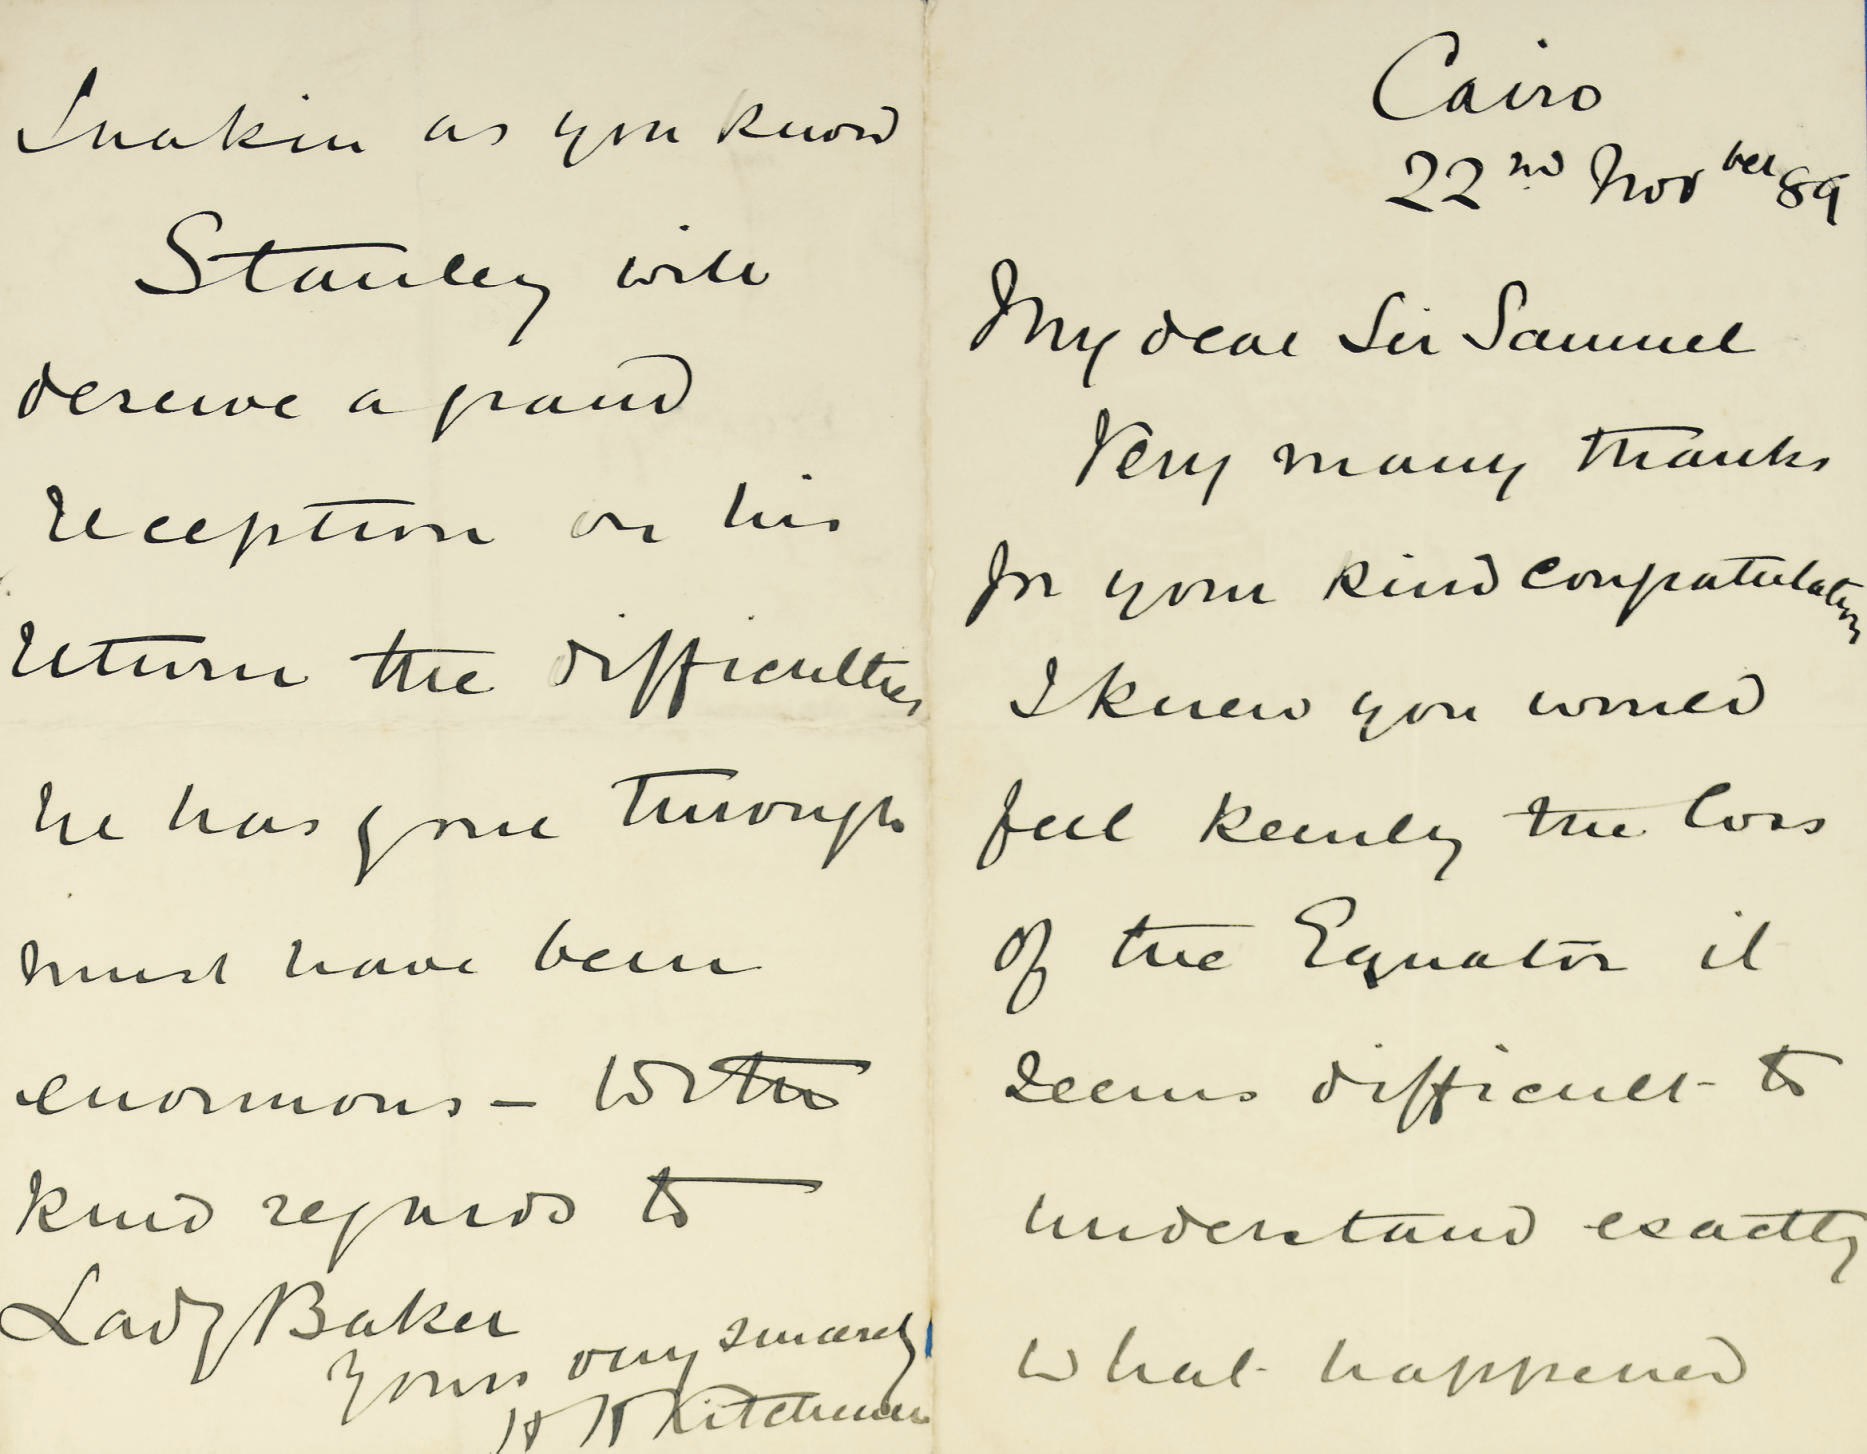 Cairo
22nd Novber 89
My dear Sir Samuel
Very many thanks
for your kind congratulations
I knew you would
feel keenly the loss
of the Equator it
seems difficult to
understand exactly
what happened
Suakin as you know
Stanley will
deserve a grand
reception on his
return the difficulties
he has gone through
must have been
enormous – With
kind regards to
Lady Baker
Yours very sincerely
H H Kitchener